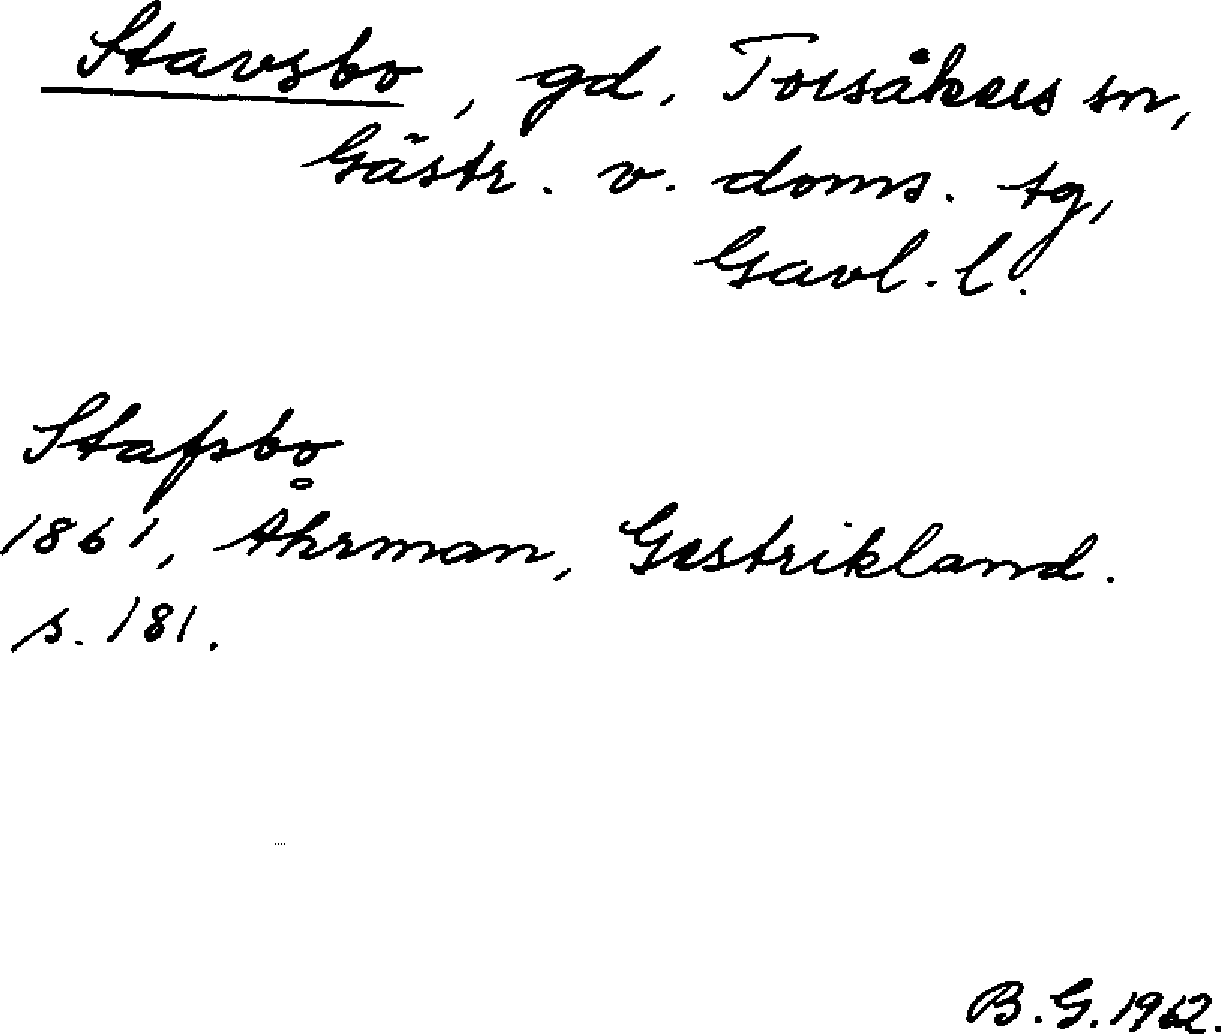 Stavsbo, gd, Torsåkers sn,
Gästr. v. doms. tg,
Gävl. l.
Stafsbo
1861, Åhrman, Gestrikland.
s. 181.
B.G. 1962.